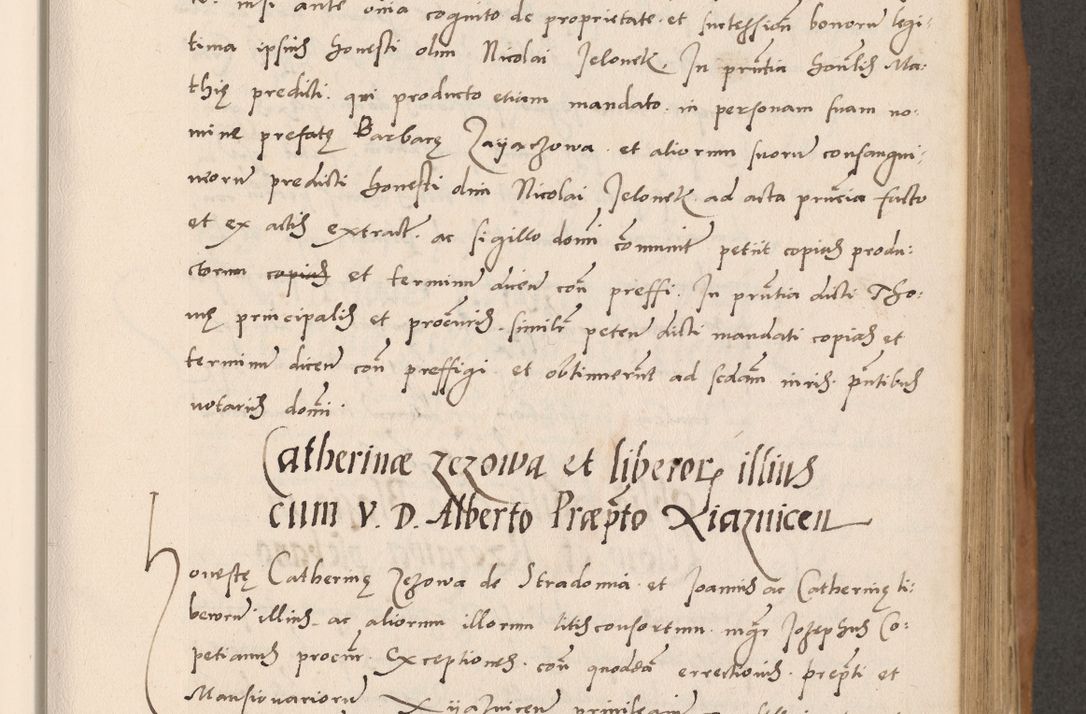 te. nisi ante omnia cognito de proprietate et successioni bonorum legi-
tima ipsius honesti olim Nicolai Jelonek. In pñtia honẽlis Ma-
thię predicti. qui producto etiam mandato in personam suam no-
mine prefatę Barbarę Zayarzowa et aliorum suorum consangui-
neorum predicti honesti olim Nicolai Jelonek ad acta pñcia facto
et ex actis extract. ac sigillo domi communit petiit copias produ-
ctorum copias et terminum dicen con preffi. In pñtia dicti Tho-
mę principalis et procuris. similr peten dicti mandati copias et
terminum dicen con preffigi et obtinuerunt ad sedam iuris. pñtibus
notariis domi.
Catherinæ Zezowa et liberor illius
cum V. D. Alberto Præpto Xiaznicen
Honestę Catherinę Zezowa de Stradomia et Joannis ac Catherinę li-
berorum illius ac aliorum illorum litis consortum. mgr Jozephus Co-
petianus procur. Exceptiones con quoddam errectionis prepti et
Mansionariorum Xyaznicen privilegium